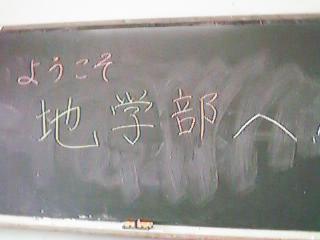 ようこそ
地学部へ